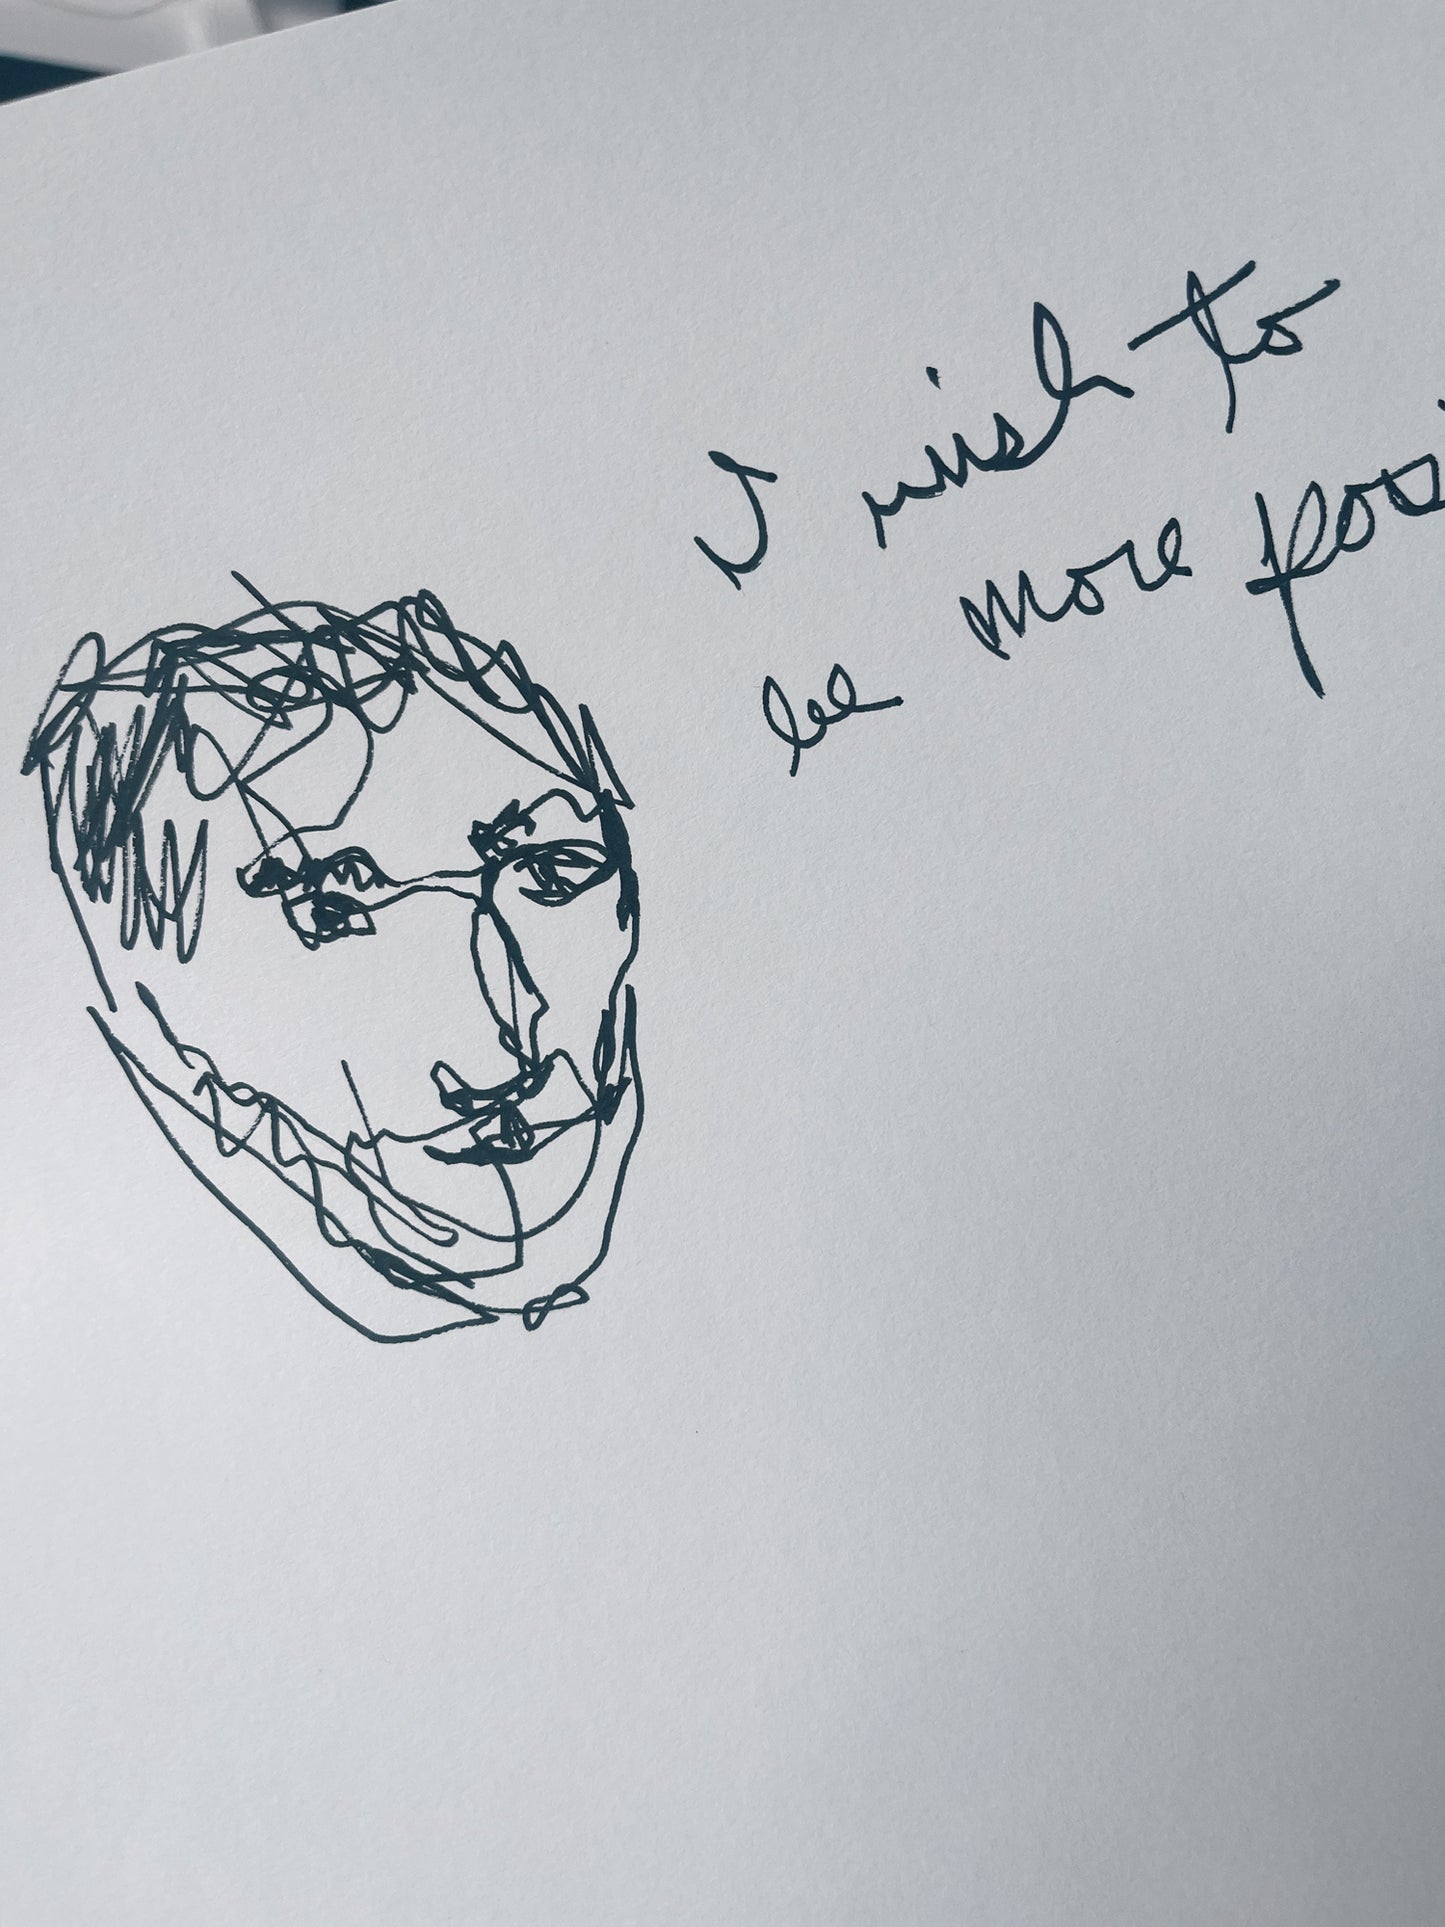 I wish to
be more posi